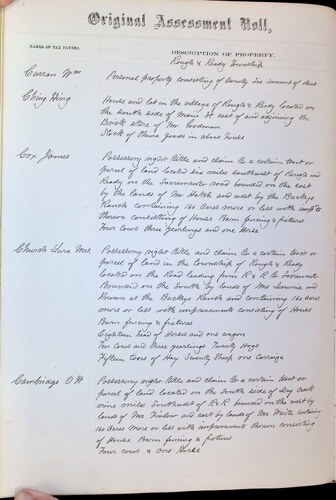 Original Assessment Roll,
NAMES OF TAX PAYERS.
DESCRIPTION OF PROPERTY.
Rough & Ready Township
Curran Wm Personal property consisting of Seventy Six Swarms of Bees
Ching Hing House and lot in the village of Rough & Ready located on
the South side of Main St east of and adjoining the
Brick store of Mr Goodman
Stock of China goods in above House
Cox James Possessory right title and claim to a certain tract or
parcel of land located six miles southwest of Rough and
Ready on the Sacramento road bounded on the east
by the lands of Mr Hatch and west by the Buckeye
Ranch containing 160 acres more or less with impts
thereon consisting of House Barn fencing & fixtures
Four cows three yearlings and one Horse
Church Mrs Possessory right title and claim to a certain tract or
parcel of land in the township of Rough & Ready
located on the Road leading from R & R to Sacramento
Bounded on the South by lands of Mr and
known as the Buckeye Ranch and containing 160 acres
more or less with improvements consisting of House
Barn fencing & fixtures
Eighteen head of Horses and one wagon
Ten cows and three yearlings Twenty Hogs
Fifteen tons of Hay Seventy Sheep one carriage
Cambridge O W Possessory right title and claim to a certain tract or
parcel of land located on the South side of Dry Creek
nine miles Southwest of R & R bounded on the west by
lands of Mr and east by lands of Mr White containing
160 Acres more or less with improvements thereon consisting
of House Barn fencing & fixtures
Four cows & one Horse